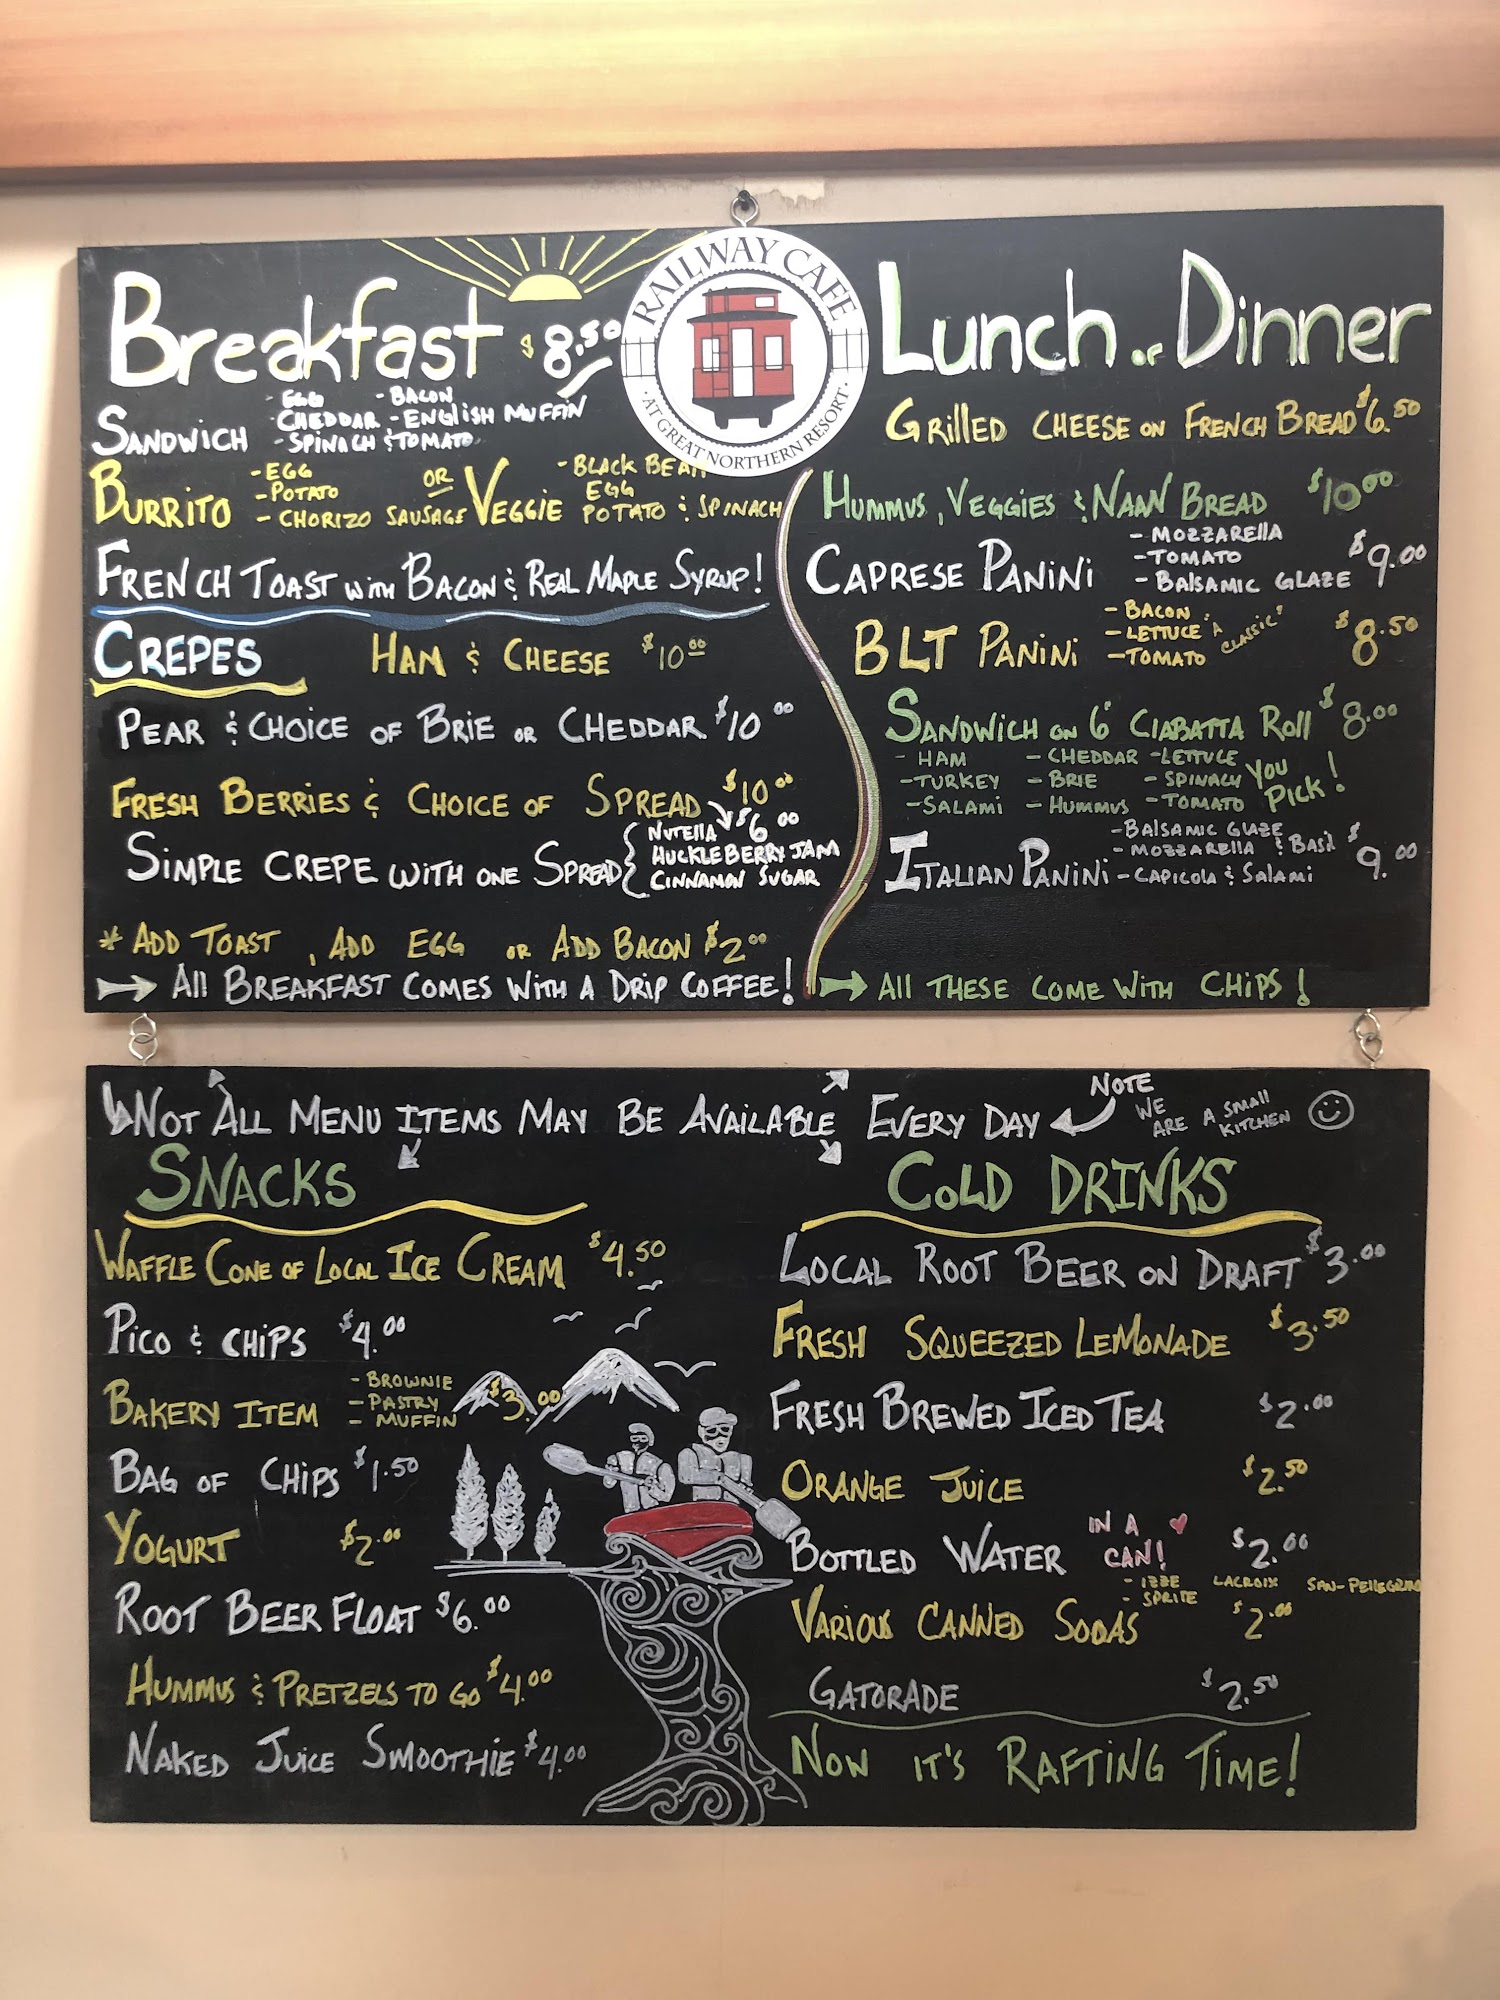 RAILWAY CAFE
· AT GREAT NORTHERN RESORT ·
Breakfast $8.50
SANDWICH
- EGG - BACON
- CHEDDAR - ENGLISH MUFFIN
- SPINACH & TOMATO
BURRITO
- EGG
- POTATO
- CHORIZO SAUSAGE
OR
VEGGIE
- BLACK BEAN
EGG
POTATO & SPINACH
FRENCH TOAST WITH BACON & REAL MAPLE SYRUP!
CREPES HAM & CHEESE $10.00
PEAR & CHOICE OF BRIE OR CHEDDAR $10.00
FRESH BERRIES & CHOICE OF SPREAD $10.00
SIMPLE CREPE WITH ONE SPREAD $6.00
NUTELLA
HUCKLEBERRY JAM
CINNAMON SUGAR
* ADD TOAST, ADD EGG OR ADD BACON $2.00
ALL BREAKFAST COMES WITH A DRIP COFFEE!
Lunch or Dinner
GRILLED CHEESE ON FRENCH BREAD $6.50
HUMMUS, VEGGIES & NAAN BREAD $10.00
CAPRESE PANINI $9.00
- MOZZARELLA
- TOMATO
- BALSAMIC GLAZE
BLT PANINI $8.50
- BACON
- LETTUCE
- TOMATO
"A CLASSIC"
SANDWICH ON 6" CIABATTA ROLL $8.00
- HAM - CHEDDAR - LETTUCE
- TURKEY - BRIE - SPINACH
- SALAMI - HUMMUS - TOMATO
YOU PICK!
ITALIAN PANINI $9.00
- BALSAMIC GLAZE
- MOZZARELLA & BASIL
- CAPICOLA & SALAMI
ALL THESE COME WITH CHIPS!
NOT ALL MENU ITEMS MAY BE AVAILABLE EVERY DAY
NOTE
WE ARE A SMALL KITCHEN
SNACKS
WAFFLE CONE OF LOCAL ICE CREAM $4.50
PICO & CHIPS $4.00
BAKERY ITEM $3.00
- BROWNIE
- PASTRY
- MUFFIN
BAG OF CHIPS $1.50
YOGURT $2.00
ROOT BEER FLOAT $6.00
HUMMUS & PRETZELS TO GO $4.00
NAKED JUICE SMOOTHIE $4.00
COLD DRINKS
LOCAL ROOT BEER ON DRAFT $3.00
FRESH SQUEEZED LEMONADE $3.50
FRESH BREWED ICED TEA $2.00
ORANGE JUICE $2.50
BOTTLED WATER IN A CAN! $2.00
VARIOUS CANNED SODAS $2.00
- IZZE LACROIX SAN-PELLEGRINO
- SPRITE
GATORADE $2.50
NOW IT'S RAFTING TIME!